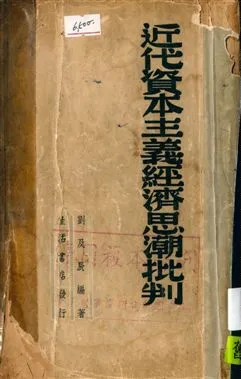 近代資本主義經濟思潮批判
劉及辰編著
生活書店發行
6,500.